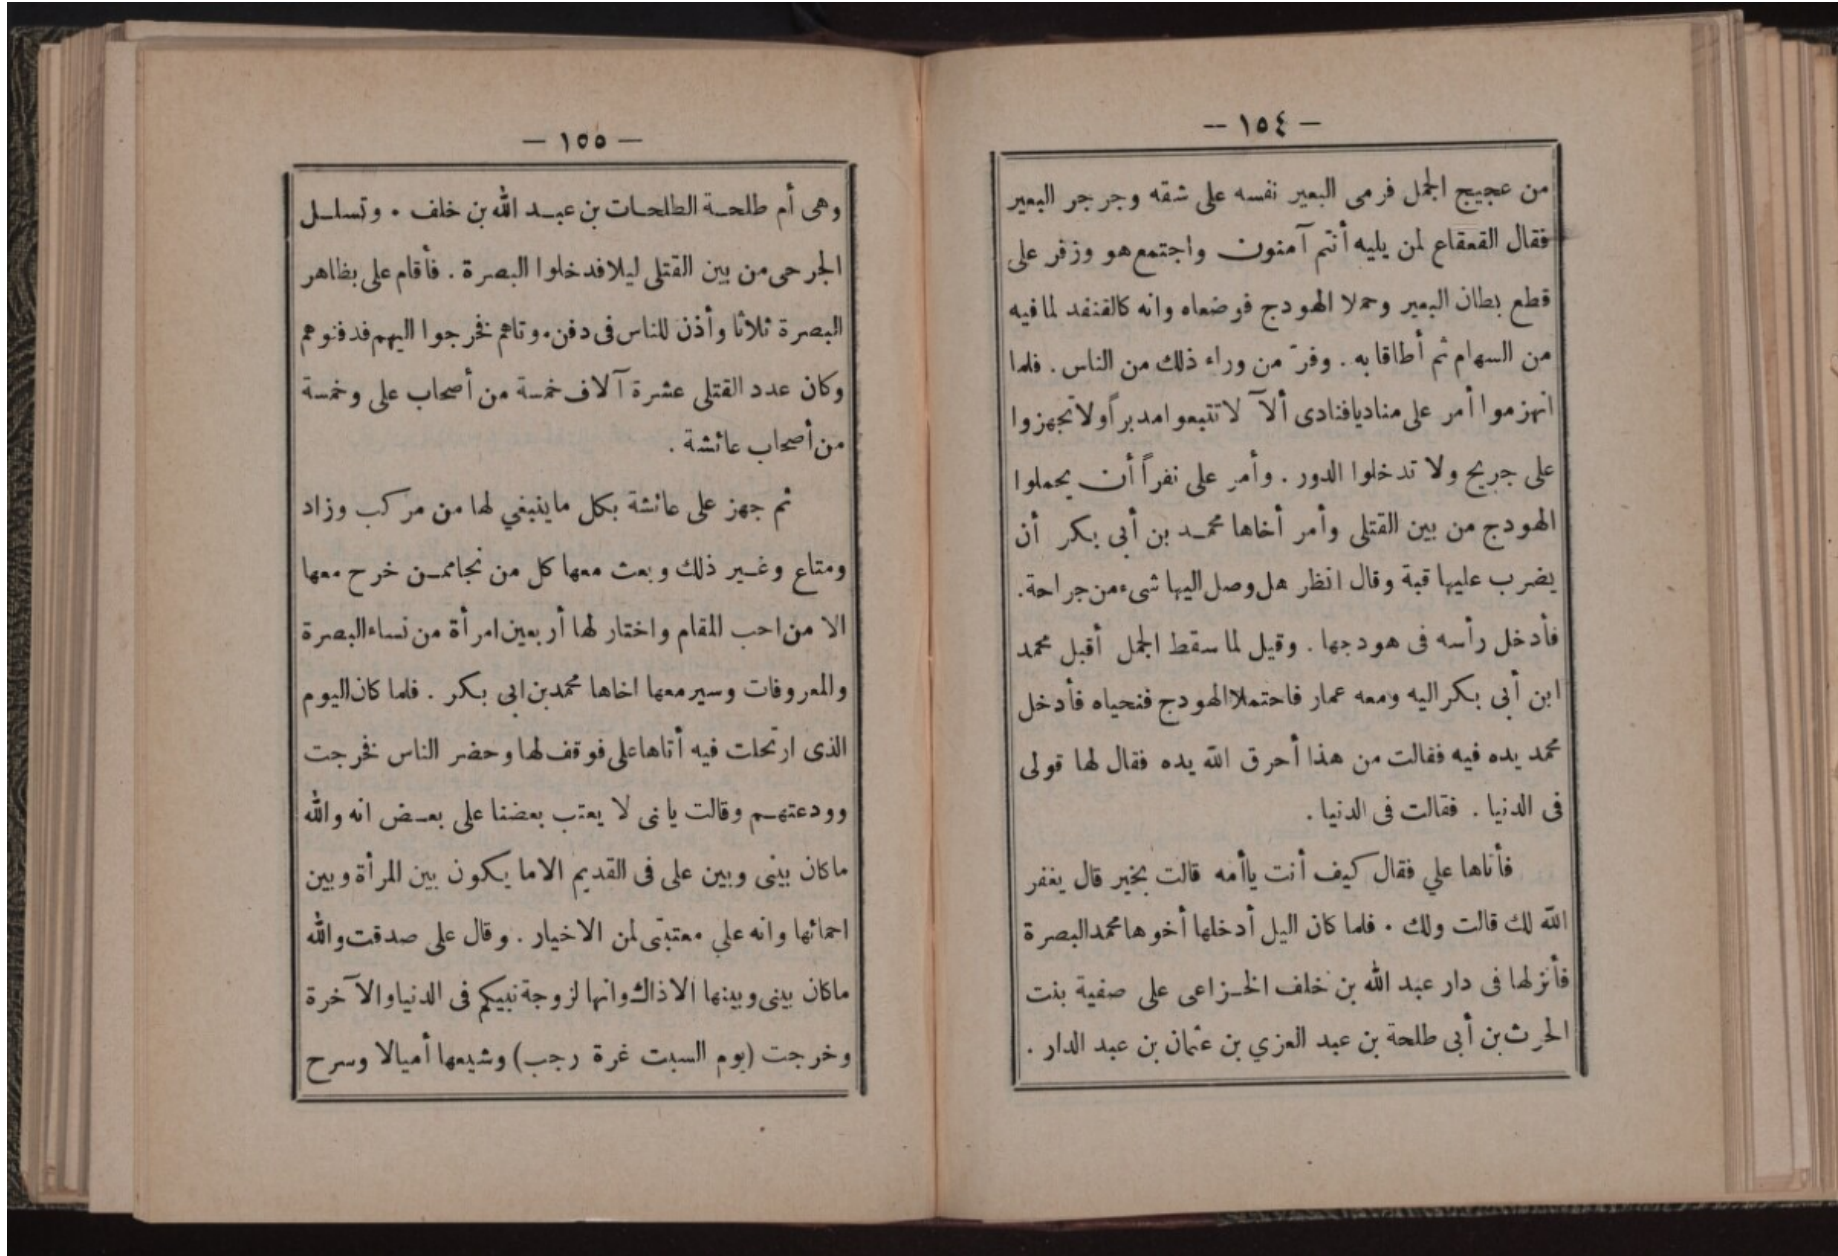 — ١٥٤ —
من عجيج الجمل فرمى البعير نفسه على شقه وجرجر البعير
فقال القعقاع لمن يليه أنتم آمنون واجتمع هو وزفر على
قطع بطان البعير وحملا الهودج فوضعاه وانه كالقنفد لما فيه
من السهام ثم أطاقا به . وفرّ من وراء ذلك من الناس . فلما
انهزموا أمر على مناديا فنادى ألآ لا تتبعوا مدبراً ولا تجهزوا
على جريح ولا تدخلوا الدور . وأمر على نفراً أن يحملوا
الهودج من بين القتلى وأمر أخاها محمد بن أبى بكر أن
يضرب عليها قبة وقال انظر هل وصل اليها شىء من جراحة .
فأدخل رأسه فى هودجها . وقيل لما سقط الجمل أقبل محمد
ابن أبى بكر اليه ومعه عمار فاحتملا الهودج فنحياه فأدخل
محمد يده فيه فقالت من هذا أحرق الله يده فقال لها قولى
فى الدنيا . فقالت فى الدنيا .
فأتاها علي فقال كيف أنت يا أمه قالت بخير قال يغفر
الله لك قالت ولك . فلما كان اليل أدخلها أخوها محمد البصرة
فأنزلها فى دار عبد الله بن خلف الخزاعى على صفية بنت
الحرث بن أبى طلحة بن عبد العزي بن عثمان بن عبد الدار .
— ١٥٥ —
وهى أم طلحة الطلحات بن عبد الله بن خلف . وتسلل
الجرحى من بين القتلى ليلا فدخلوا البصرة . فأقام على بظاهر
البصرة ثلاثا وأذن للناس فى دفن موتاهم فخرجوا اليهم فدفنوهم
وكان عدد القتلى عشرة آلاف خمسة من أصحاب على وخمسة
من أصحاب عائشة .
ثم جهز على عائشة بكل ما ينبغي لها من مركب وزاد
ومتاع وغير ذلك وبعث معها كل من نجا ممن خرح معها
الا من احب المقام واختار لها أربعين امرأة من نساء البصرة
والمعروفات وسير معها اخاها محمد بن ابى بكر . فلما كان اليوم
الذى ارتحلت فيه أتاها على فوقف لها وحضر الناس فخرجت
وودعتهم وقالت يا بنى لا يعتب بعضنا على بعض انه والله
ما كان بينى وبين على فى القديم الا ما يكون بين المرأة وبين
احمائها وانه علي معتبتى لمن الاخيار . وقال على صدقت والله
ما كان بينى وبينها الا ذاك وانها لزوجة نبيكم فى الدنيا والآخرة
وخرجت (يوم السبت غرة رجب) وشيعها أميالا وسرح